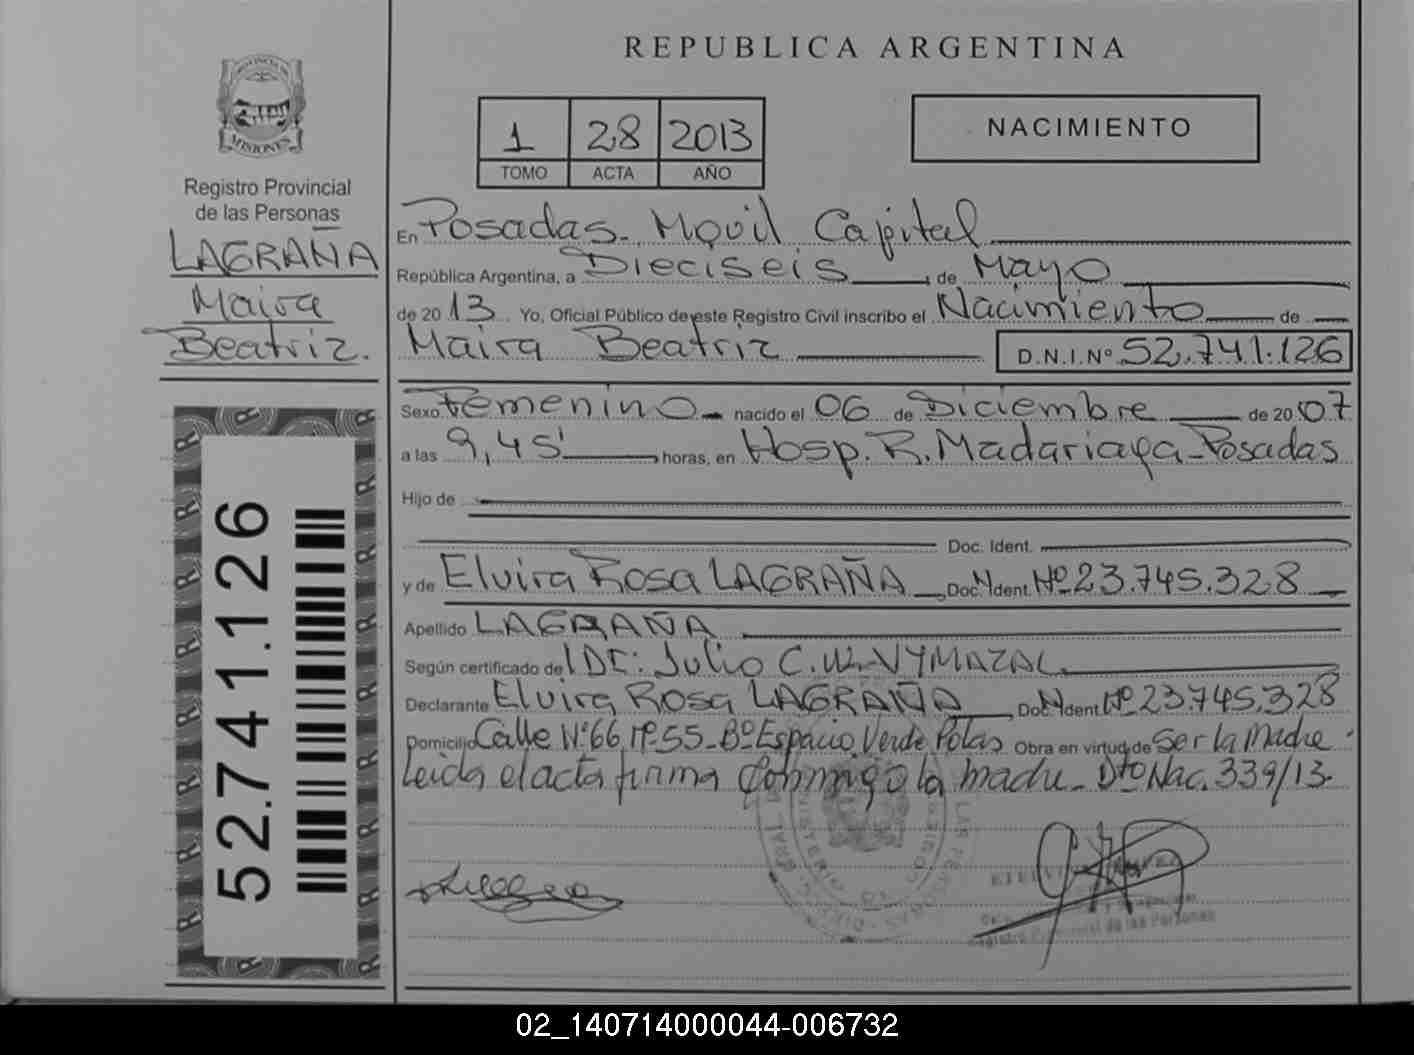 REPUBLICA ARGENTINA
PROVINCIA DE
MISIONES
Registro Provincial
de las Personas
LAGRAÑA
Maira
Beatriz.
52.741.126
1 28 2013
TOMO ACTA AÑO
NACIMIENTO
En Posadas. Movil Capital
República Argentina, a Dieciseis de Mayo
de 2013 Yo, Oficial Público de este Registro Civil inscribo el Nacimiento de
Maira Beatriz D.N.I.Nº 52.741.126
Sexo Femenino nacido el 06 de Diciembre de 2007
a las 9,45' horas, en Hosp. R. Madariaga - Posadas
Hijo de
Doc. Ident.
y de Elvira Rosa LAGRAÑA Doc. Ident. Nº 23.745.328
Apellido LAGRAÑA
Según certificado de Julio C. W. VYMAZAL
Declarante Elvira Rosa LAGRAÑA Doc. Ident. Nº 23.745.328
Domicilio Calle Nº 66, Nº 55 - Bº Espacio Verde Pdas Obra en virtud de Ser la Madre
Leida el acta firma Conmigo la madre - Dto Nac. 339/13.
Registro Provincial de las Personas
02_140714000044-006732